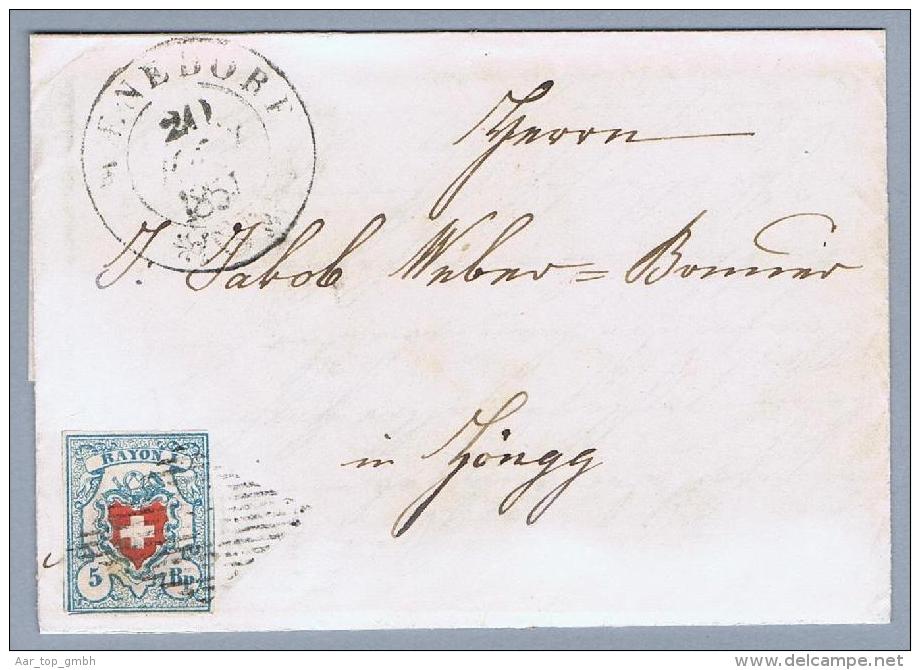 MÆNEDORF
20
1851
Herrn
J. Jakob Weber = Bommer
in Höngg
RAYON I.
5 Rp.
Aar_top_gmbh
www.delcampe.net